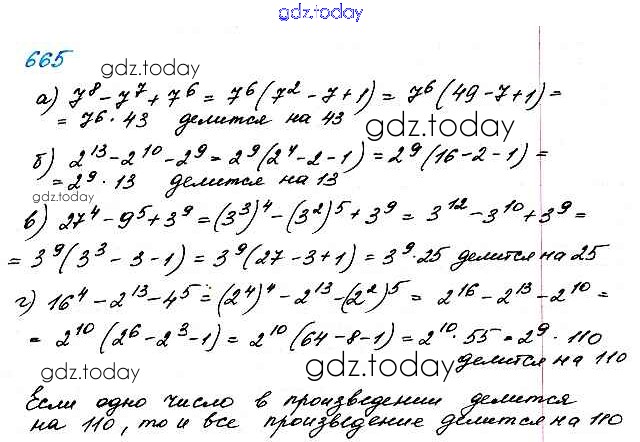 gdz.today
665
gdz.today
а) 7⁸ - 7⁷ + 7⁶ = 7⁶(7² - 7 + 1) = 7⁶(49 - 7 + 1) =
= 7⁶ · 43 делится на 43
gdz.today
б) 2¹³ - 2¹⁰ - 2⁹ = 2⁹(2⁴ - 2 - 1) = 2⁹(16 - 2 - 1) =
= 2⁹ · 13 делится на 13
gdz.today
в) 27⁴ - 9⁵ + 3⁹ = (3³)⁴ - (3²)⁵ + 3⁹ = 3¹² - 3¹⁰ + 3⁹ =
= 3⁹(3³ - 3 - 1) = 3⁹(27 - 3 + 1) = 3⁹ · 25 делится на 25
г) 16⁴ - 2¹³ - 4⁵ = (2⁴)⁴ - 2¹³ - (2²)⁵ = 2¹⁶ - 2¹³ - 2¹⁰ =
= 2¹⁰(2⁶ - 2³ - 1) = 2¹⁰(64 - 8 - 1) = 2¹⁰ · 55 = 2⁹ · 110
делится на 110
gdz.today
gdz.today
Если одно число в произведении делится
на 110, то и все произведение делится на 110